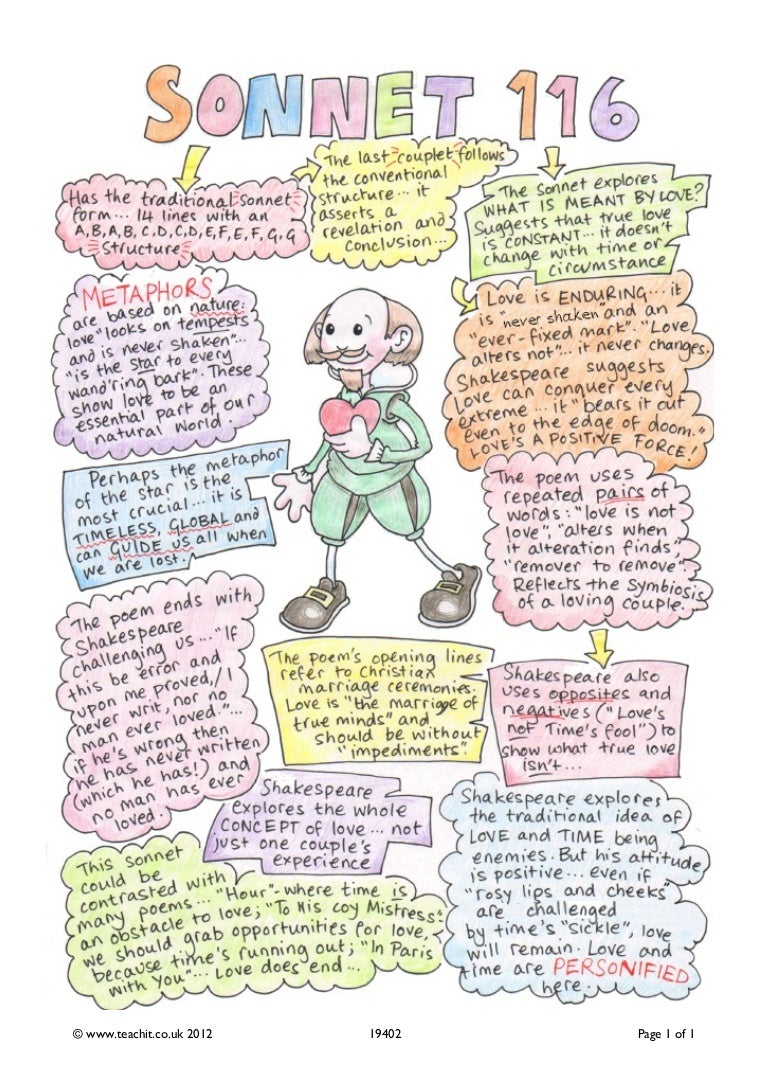 SONNET 116
Has the traditional sonnet
form... 14 lines with an
A,B,A,B, C,D,C,D,E,F,E,F,G,G
structure
The last couplet follows
the conventional
structure... it
asserts a
revelation and
conclusion...
The Sonnet explores
WHAT IS MEANT BY LOVE?
Suggests that true love
is CONSTANT... it doesn't
change with time or
circumstance
METAPHORS
are based on nature:
love "looks on tempests
and is never shaken"...
"is the star to every
wand'ring bark". These
show love to be an
essential part of our
natural world.
Love is ENDURING... it
is "never shaken and an
"ever-fixed mark". "Love
alters not"... it never changes.
Shakespeare suggests
Love can conquer every
extreme... it "bears it out
even to the edge of doom."
LOVE'S A POSITIVE FORCE!
Perhaps the metaphor
of the star is the
most crucial... it is
TIMELESS GLOBAL and
can GUIDE US all when
we are lost.
The poem uses
repeated pairs of
words: "love is not
love", "alters when
it alteration finds",
"remover to remove".
Reflects the symbiosis
of a loving couple.
The poem ends with
Shakespeare
challenging us... "If
this be error and
upon me proved,/I
never writ, nor no
man ever loved."...
if he's wrong then
he has never written
(which he has!) and
no man has ever
loved.
The poem's opening lines
refer to Christian
marriage ceremonies.
Love is "the marriage of
true minds" and
should be without
"impediments".
Shakespeare also
uses opposites and
negatives ("Love's
not Time's fool") to
show what true love
isn't...
Shakespeare
explores the whole
CONCEPT of love... not
just one couple's
experience
Shakespeare explores
the traditional idea of
LOVE and TIME being
enemies. But his attitude
is positive... even if
"rosy lips and cheeks"
are challenged
by time's "sickle", love
will remain. Love and
time are PERSONIFIED
here.
This sonnet
could be
contrasted with
many poems... "Hour"- where time is
an obstacle to love; "To His coy Mistress"-
we should grab opportunities for love,
because time's running out; "In Paris
with You"... Love does end...
© www.teachit.co.uk 2012
19402
Page 1 of 1